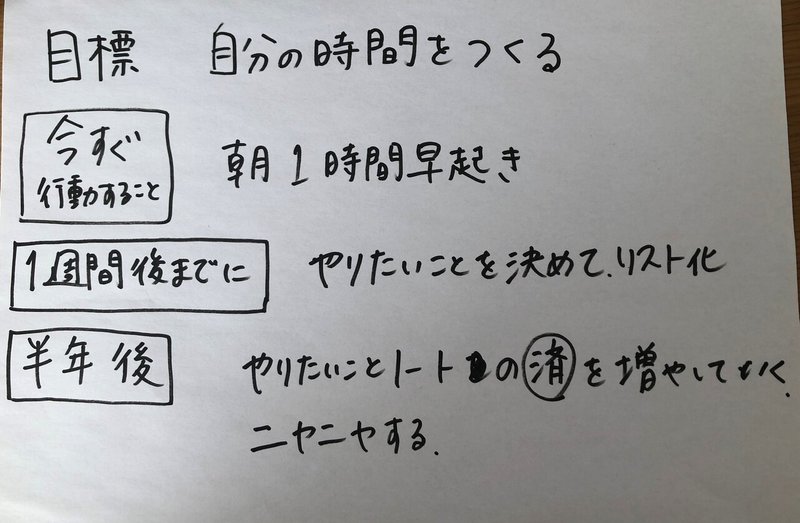 目標 自分の時間をつくる
今すぐ
行動すること
朝1時間早起き
1週間後までに やりたいことを決めて、リスト化
半年後 やりたいことノートの済を増やしていく、
ニヤニヤする。